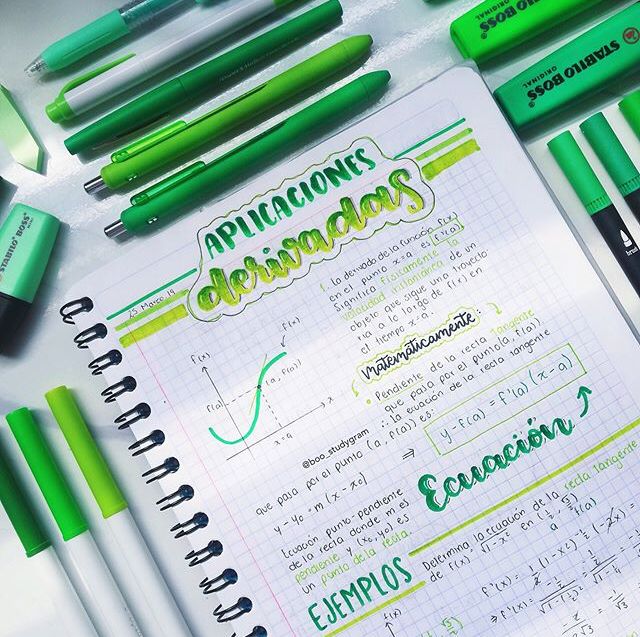 STABILO BOSS
ORIGINAL
STABILO BOSS
ORIGINAL
STABILO BOSS
APLICACIONES
derivadas
25 Marzo 19
1. La derivada de la función f(x)
en el punto x=a es f'(a)
Significa físicamente la
velocidad instantánea de un
objeto que sigue una trayecto
ria a lo largo de f(x) en
el tiempo x=a.
f(x)
f(x)
f(a)
(a, f(a))
x
x=a
Matemáticamente:
• Pendiente de la recta tangente
que pasa por el punto (a, f(a))
∴ la ecuación de la recta tangente
que pasa por el punto (a, f(a)) es:
@boo_studygram
y-y₀=m(x-x₀)
⇒ y-f(a)=f'(a)(x-a)
Ecuación
Ecuación punto-pendiente
de la recta donde m es
pendiente y (x₀,y₀) es
un punto de la recta.
EJEMPLOS
Determina la ecuación de la recta tangente
de f(x)=
en
a f(a)
f(x)